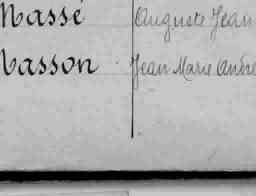 Massé Auguste Jean
Masson Jean Marie André